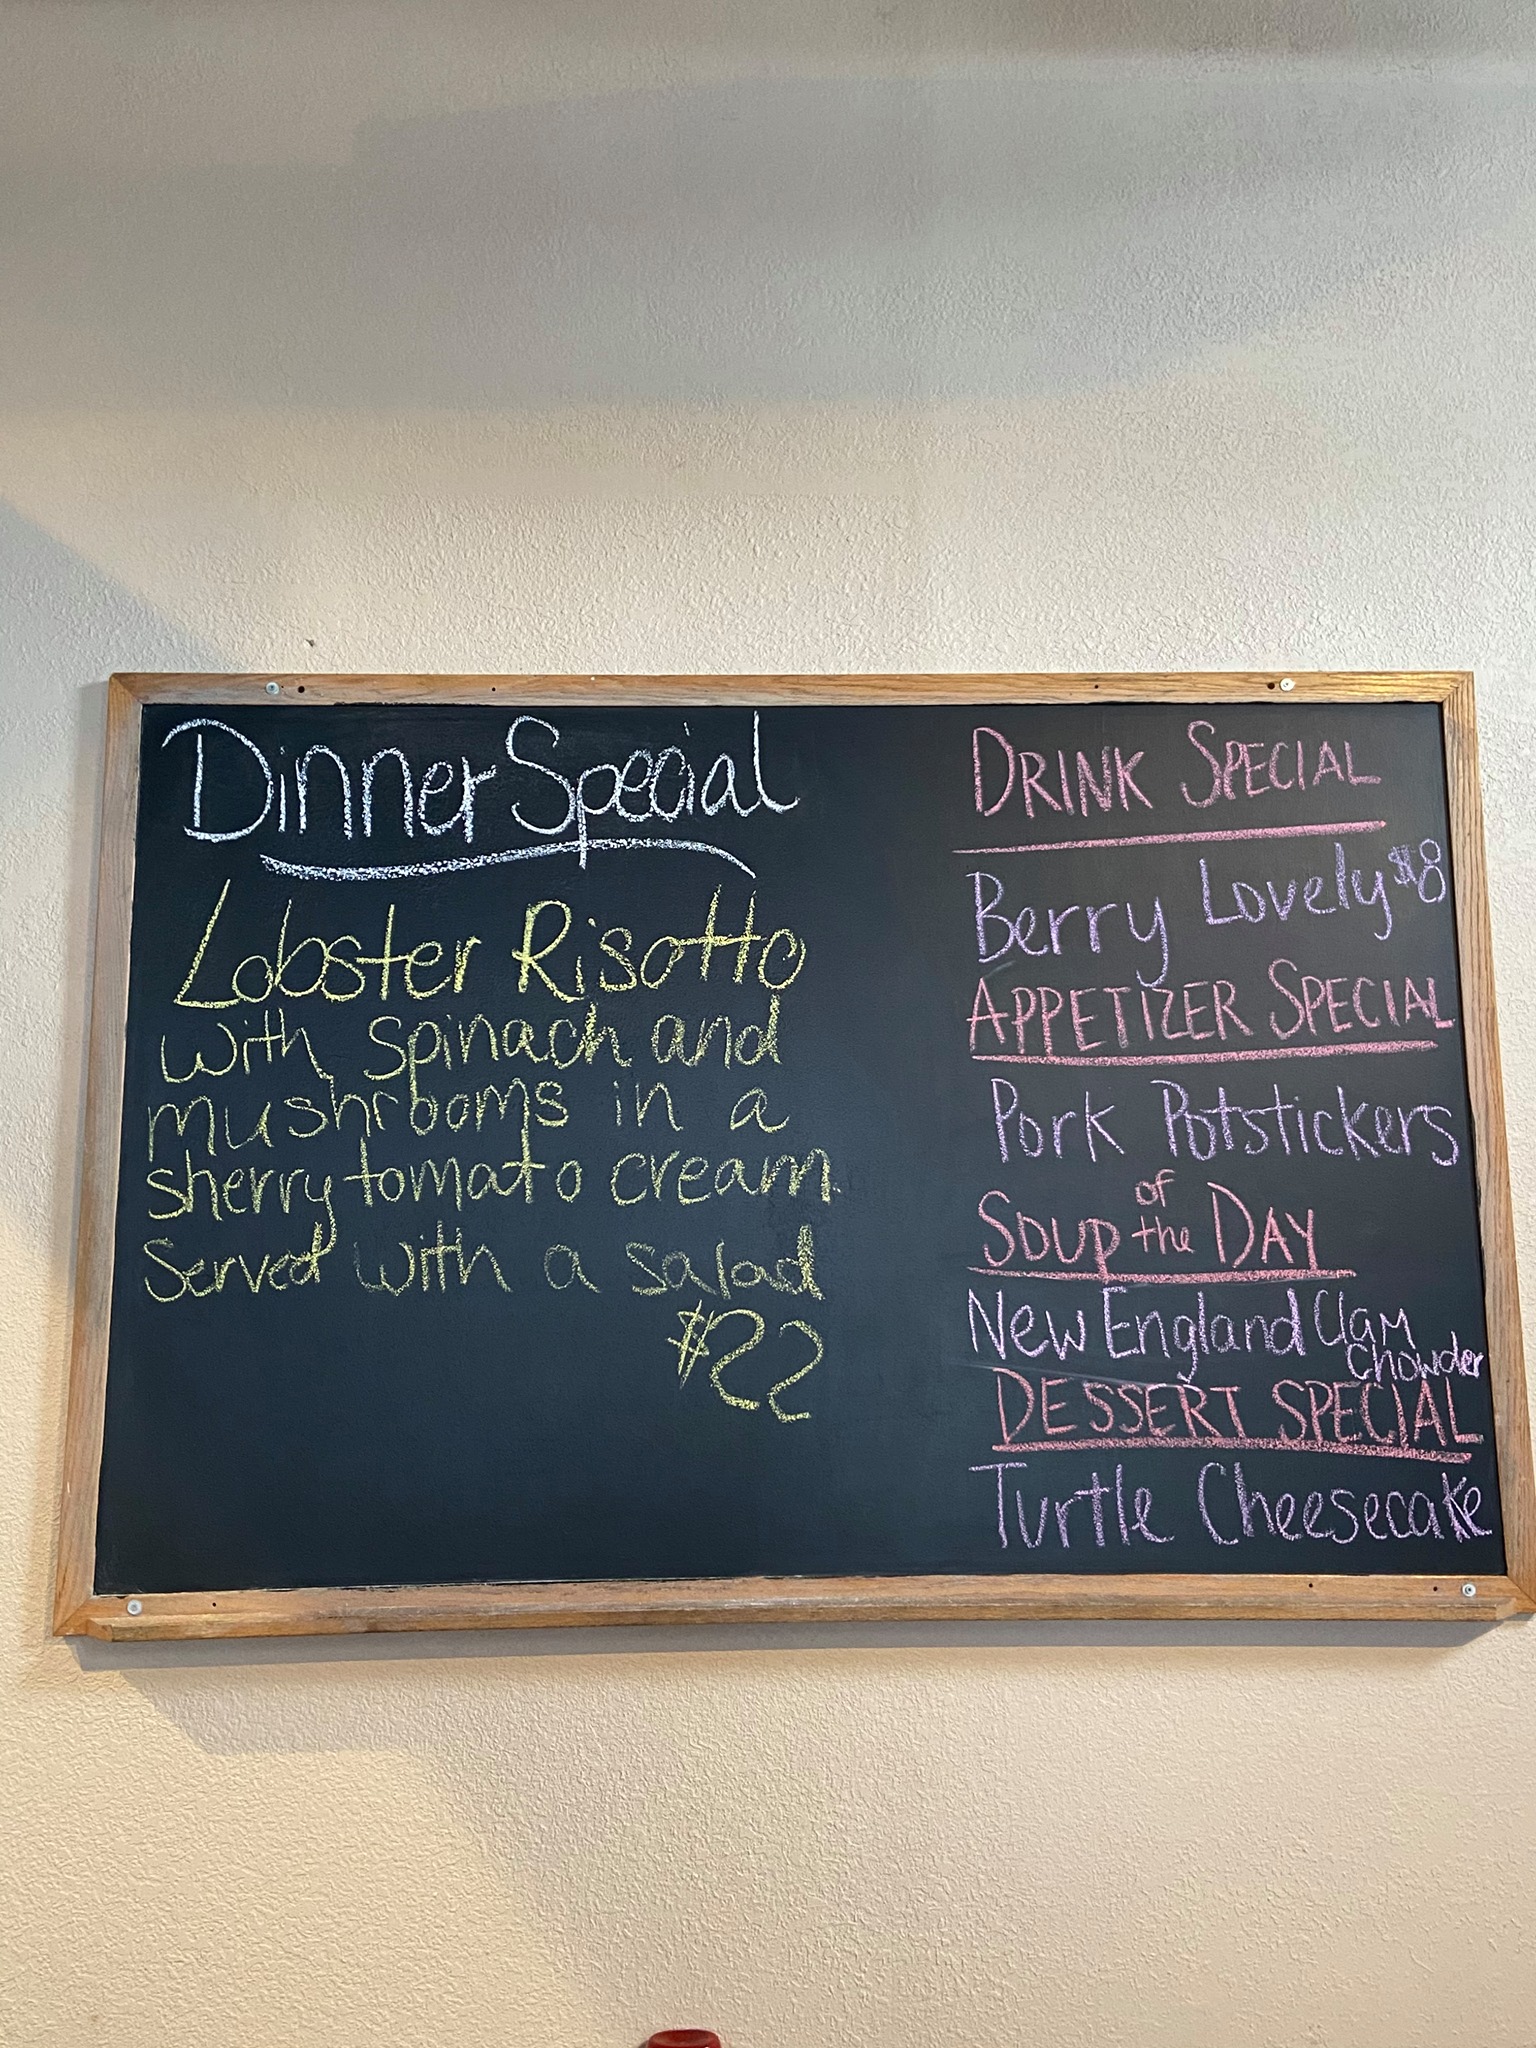 Dinner Special
Lobster Risotto
with spinach and
mushrooms in a
sherry tomato cream.
Served with a salad
$22
DRINK SPECIAL
Berry Lovely $8
APPETIZER SPECIAL
Pork Potstickers
SOUP of the DAY
New England Clam
Chowder
DESSERT SPECIAL
Turtle Cheesecake